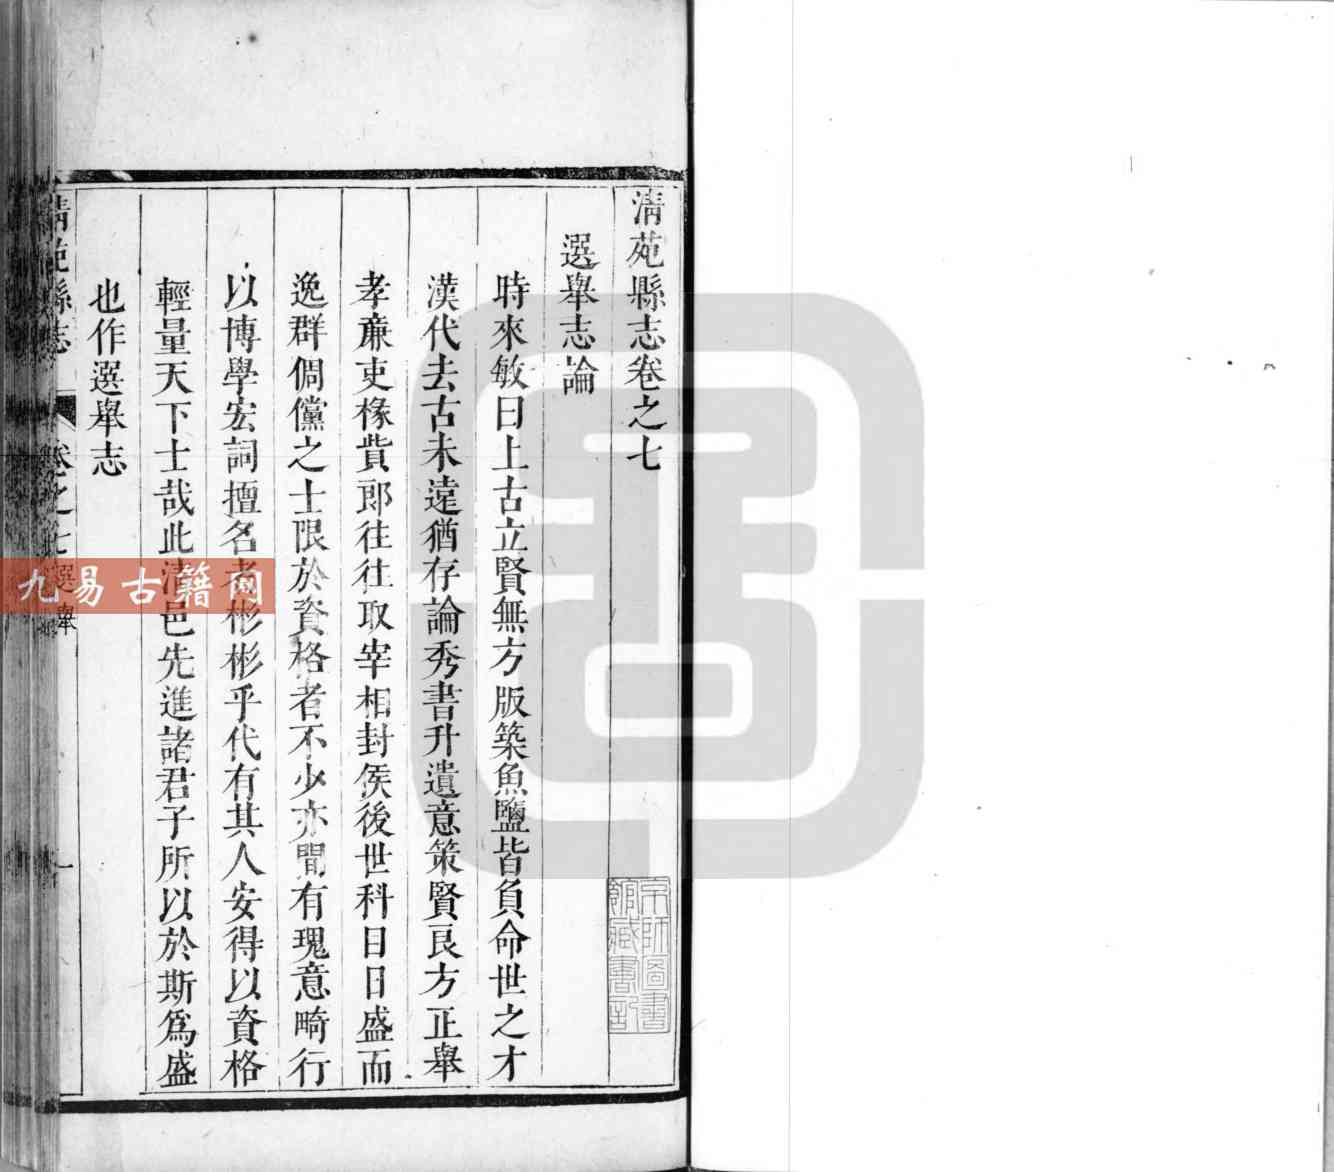 清苑縣志卷之七
選舉志論
時來敏曰上古立賢無方版築魚鹽皆負命世之才
漢代去古未遠猶存論秀書升遺意策賢良方正舉
孝亷吏椽貲郎往往取宰相封侯後世科目日盛而
逸群倜儻之士限於資格者不少亦間有瑰意畸行
以博學宏詞擅名者彬彬乎代有其人安得以資格
輕量天下士哉此清邑先進諸君子所以於斯爲盛
也作選舉志
清苑縣志 卷之七 選舉 一
京師圖書
館藏書記
九易古籍网